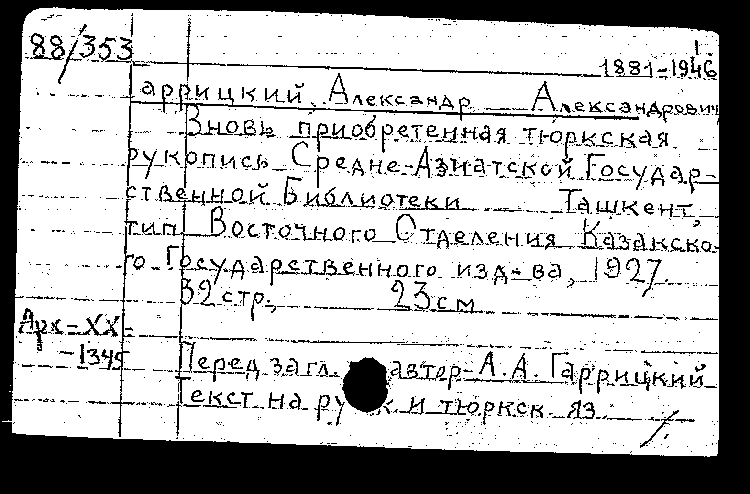 88/353
1881-1946
Гаррицкий, Александр Александрович
Вновь приобретенная тюркская
рукопись Средне-Азиатской Государ-
ственной Библиотеки Ташкент,
тип Восточного Отделения Казанско-
го Государственного изд-ва, 1927.
32 стр., 23 см
Арх-XX-
-1345
Перед загл. автор-А.А. Гаррицкий
Текст на и тюркск яз.